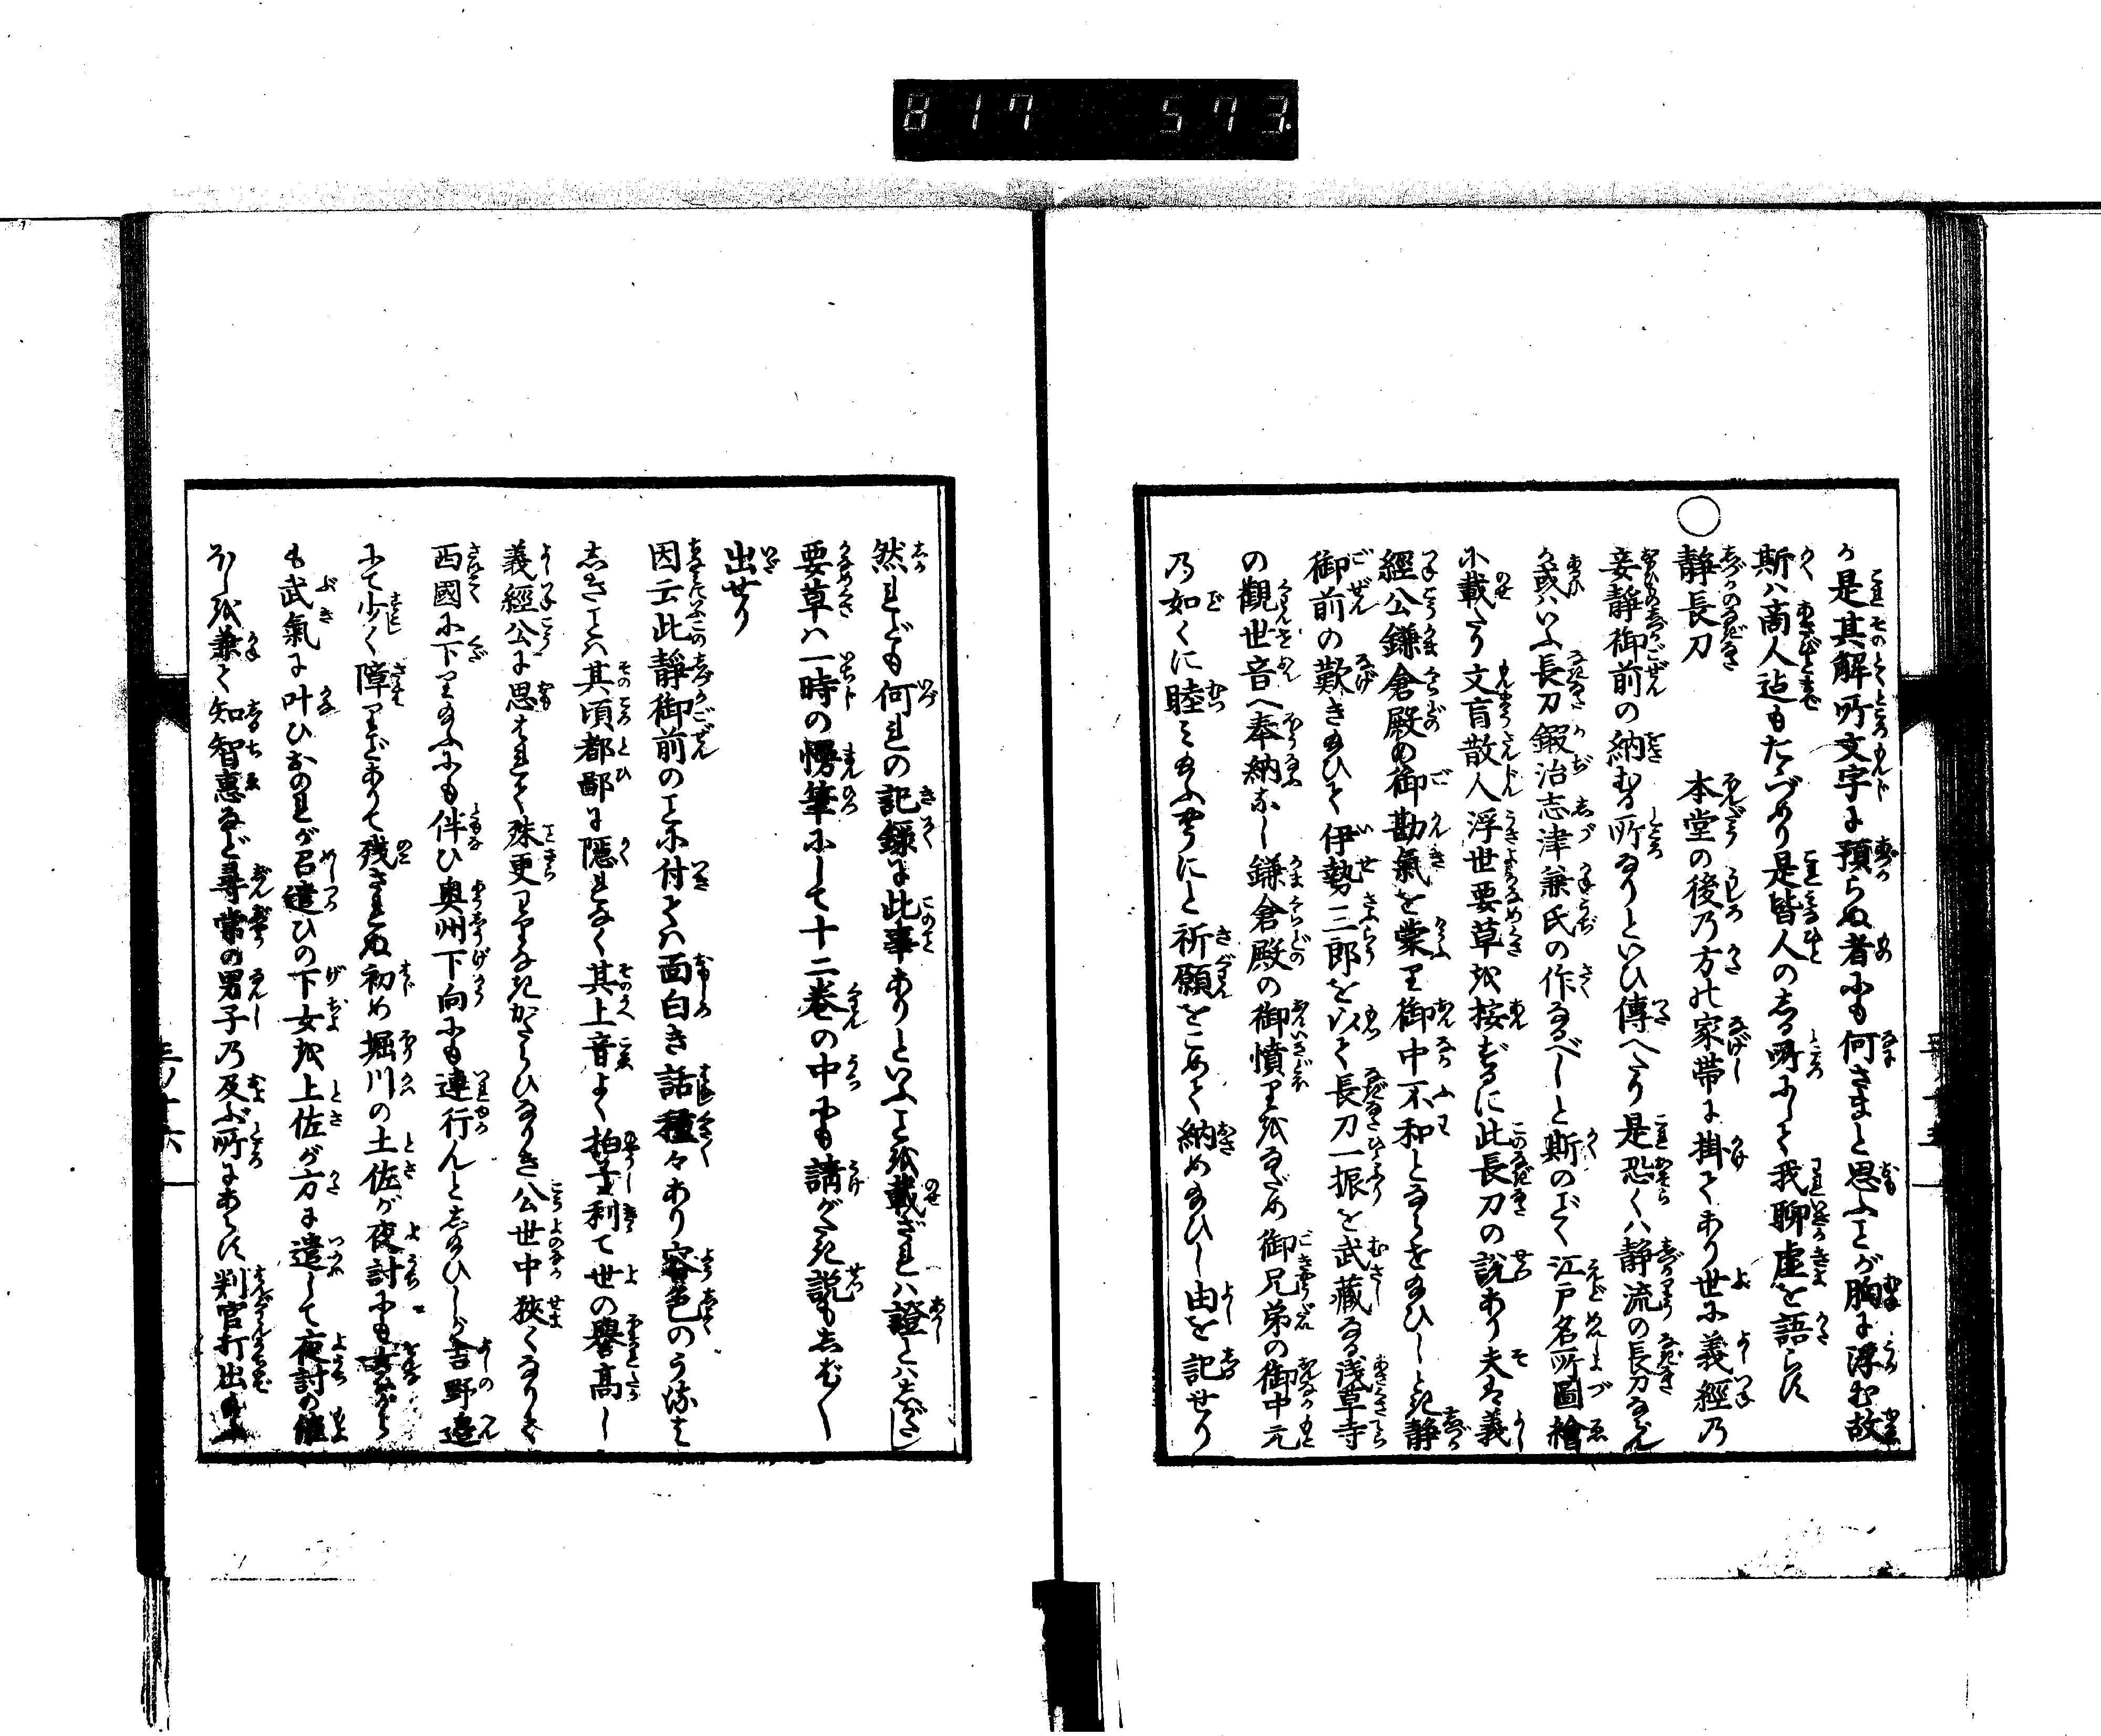 817 573.
か是其解所文字に預らぬ者にも何さまと思ふことが胸に浮む故
斯ハ商人迠もたづめり是皆人のしる所にして我聊虚を語らず
○静長刀 本堂の後乃方の家帯に掛てあり世に義經乃
妾静御前の納むる所なりといひ傳へたり是恐くハ静流の長刀ならん
か或ハいふ長刀鍜冶志津兼氏の作なるべしと斯のごとく江戸名所圖繪
に載たり文盲散人浮世要草を按ずるに此長刀の説あり夫は義
經公鎌倉殿の御勘氣を蒙り御中不和とならせ給ひしとき静
御前の歎き給ひて伊勢三郎を以て長刀一振を武藏なる浅草寺
の觀世音へ奉納なし鎌倉殿の御憤りをなだめ御兄弟の御中元
乃如くに睦み給ふやうにと祈願をこめて納め給ひし由を記せり
然れども何れの記録に此事ありといふことを載ざれハ證とハしがたし
要草ハ一時の慢筆にして十二巻の中にも講がたき説もしばしば
出せり
因云此静御前のことに付てハ面白き話種々あり容色のうるは
しきことハ其頃都鄙に隠となく其上音よく拍子利て世の譽高し
義經公に思はれて殊更わりなきかたらひなりき公世中狭くなりて
西國に下り給ふにも伴ひ奥州下向にも連行んとし給ひしが吉野邉
にて少く障りどありて残されぬ初め堀川の土佐が夜討にも女ながら
も武氣に叶ひおのれが召遣ひの下女を土佐が方に遣して夜討の催
ほしを兼て知智恵など尋常の男子乃及ぶ所にあらず判官打出給ふ